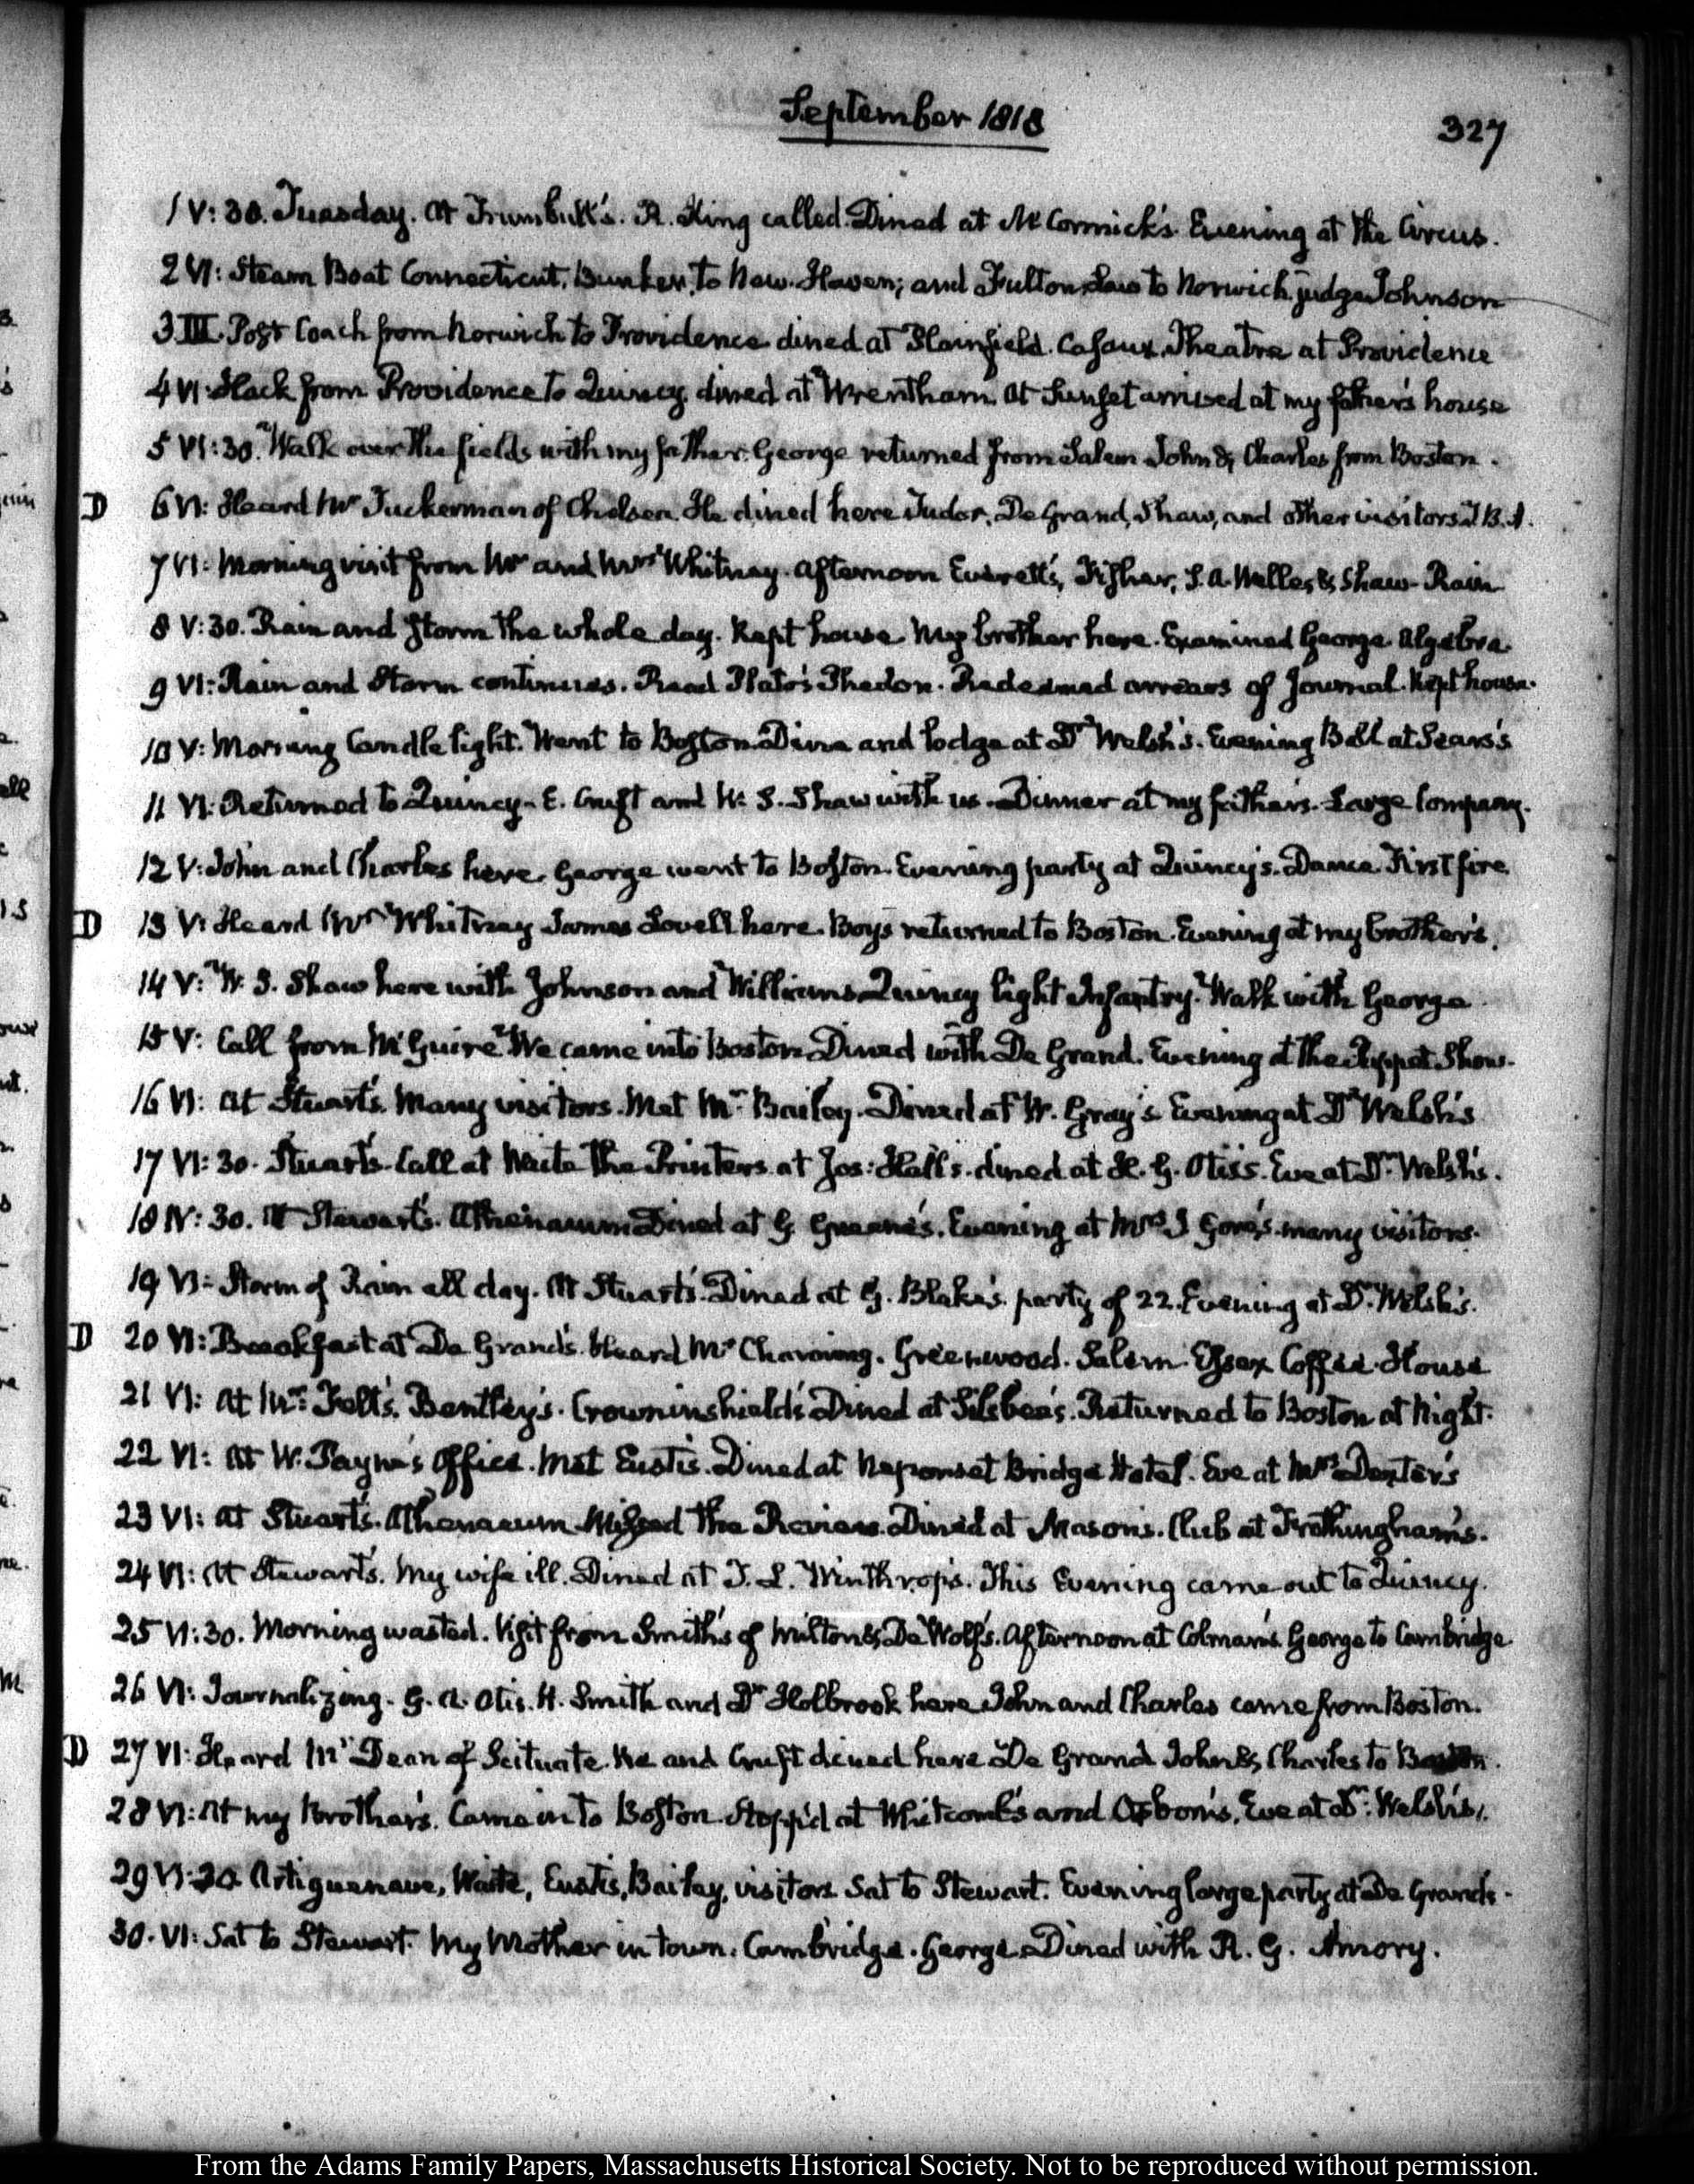 September 1818
327
1 V:30. Tuesday. At Trumbull's. R. King called. Dined at McCormick's. Evening at the Circus.
2 VI: Steam Boat Connecticut. Bunker, to New-Haven; and Fulton Law to Norwich judge Johnson
3 III. Post Coach from Norwich to Providence dined at Plainfield. Cafaux. Theatre at Providence
4 VI: Hack from Providence to Quincy. dined at Wrentham. At Sunset arrived at my father's house
5 VI:30. Walk over the fields with my father. George returned from Salem John & Charles from Boston.
D 6 VI: Heard Mr Tuckerman of Chelsea. He dined here Tudor, De Grand, Shaw, and other visitors T. B. A.
7 VI: Morning visit from Mr and Mrs Whitney. Afternoon Everett's, Fisher, S. A. Welles & Shaw- Rain
8 V:30. Rain and storm the whole day. Kept house. My brother here. Examined George. Algebra.
9 VI: Rain and Storm continues. Read Plato's Phedon. Redeemed arrears of Journal. Kept house.
10 V: Morning Candle light. Went to Boston. Dine and lodge at Dr Welsh's. Evening Ball at Sears's
11 VI: Returned to Quincy. E. Cruft and W. S. Shaw with us. Dinner at my father's. Large Company.
12 V: John and Charles here. George went to Boston. Evening party at Quincy's. Dance. First fire.
D 13 V: Heard Mr Whitney James Lovell here. Boys returned to Boston. Evening at my brother's.
14 V: W. S. Shaw here with Johnson and Williams Quincy light Infantry. Walk with George
15 V: Call from McGuire. We came into Boston. Dined with De Grand. Evening at the Puppet Show.
16 VI: At Stuart's. Many visitors. Met Mr Bailey. Dined at W. Gray's. Evening at Dr Welsh's
17 VI:30. Stuart's. Call at Waite the Printers. at Jos: Hall's. dined at H. G. Otis's. Eve at Dr Welsh's.
18 IV:30. At Stewart's. Athenaeum. Dined at G. Greene's. Evening at Mrs J Gore's. many visitors.
19 VI: Storm of Rain all day. At Stuart's. Dined at G. Blake's. party of 22. Evening at Dr Welsh's.
D 20 VI: Breakfast at De Grand's. Heard Mr Channing. Greenwood. Salem. Essex Coffee House
21 VI: At Mrs Felt's. Bentley's. Crowninshield's Dined at Silsbee's. Returned to Boston at Night.
22 VI: At W. Payne's Office. Met Eustis. Dined at Neponset Bridge Hotel. Eve at Mrs Dexter's
23 VI: At Stuart's. Athenaeum. Missed the Review. Dined at Mason's. Club at Frothingham's.
24 VI: At Stewart's. My wife ill. Dined at T. L. Winthrop's. This Evening came out to Quincy.
25 VI:30. Morning wasted. Visit from Smith's of Milton & De Wolf's. Afternoon at Colman's. George to Cambridge.
26 VI: Journalizing. G. A. Otis. H. Smith and Dr Holbrook here John and Charles came from Boston.
D 27 VI: Heard Mr Dean of Scituate. He and Cruft dined here De Grand John & Charles to Boston.
28 VI: At my Brother's. Came into Boston. Stopp'd at Whitcomb's and Osborn's. Eve at Dr Welsh's.
29 VI:30 Artiguenave, Waite, Eustis, Bailey, visitors Sat to Stewart. Evening large party at De Grand's.
30. VI: Sat to Stewart. My Mother in town. Cambridge. George. Dined with R. G. Amory.
From the Adams Family Papers, Massachusetts Historical Society. Not to be reproduced without permission.